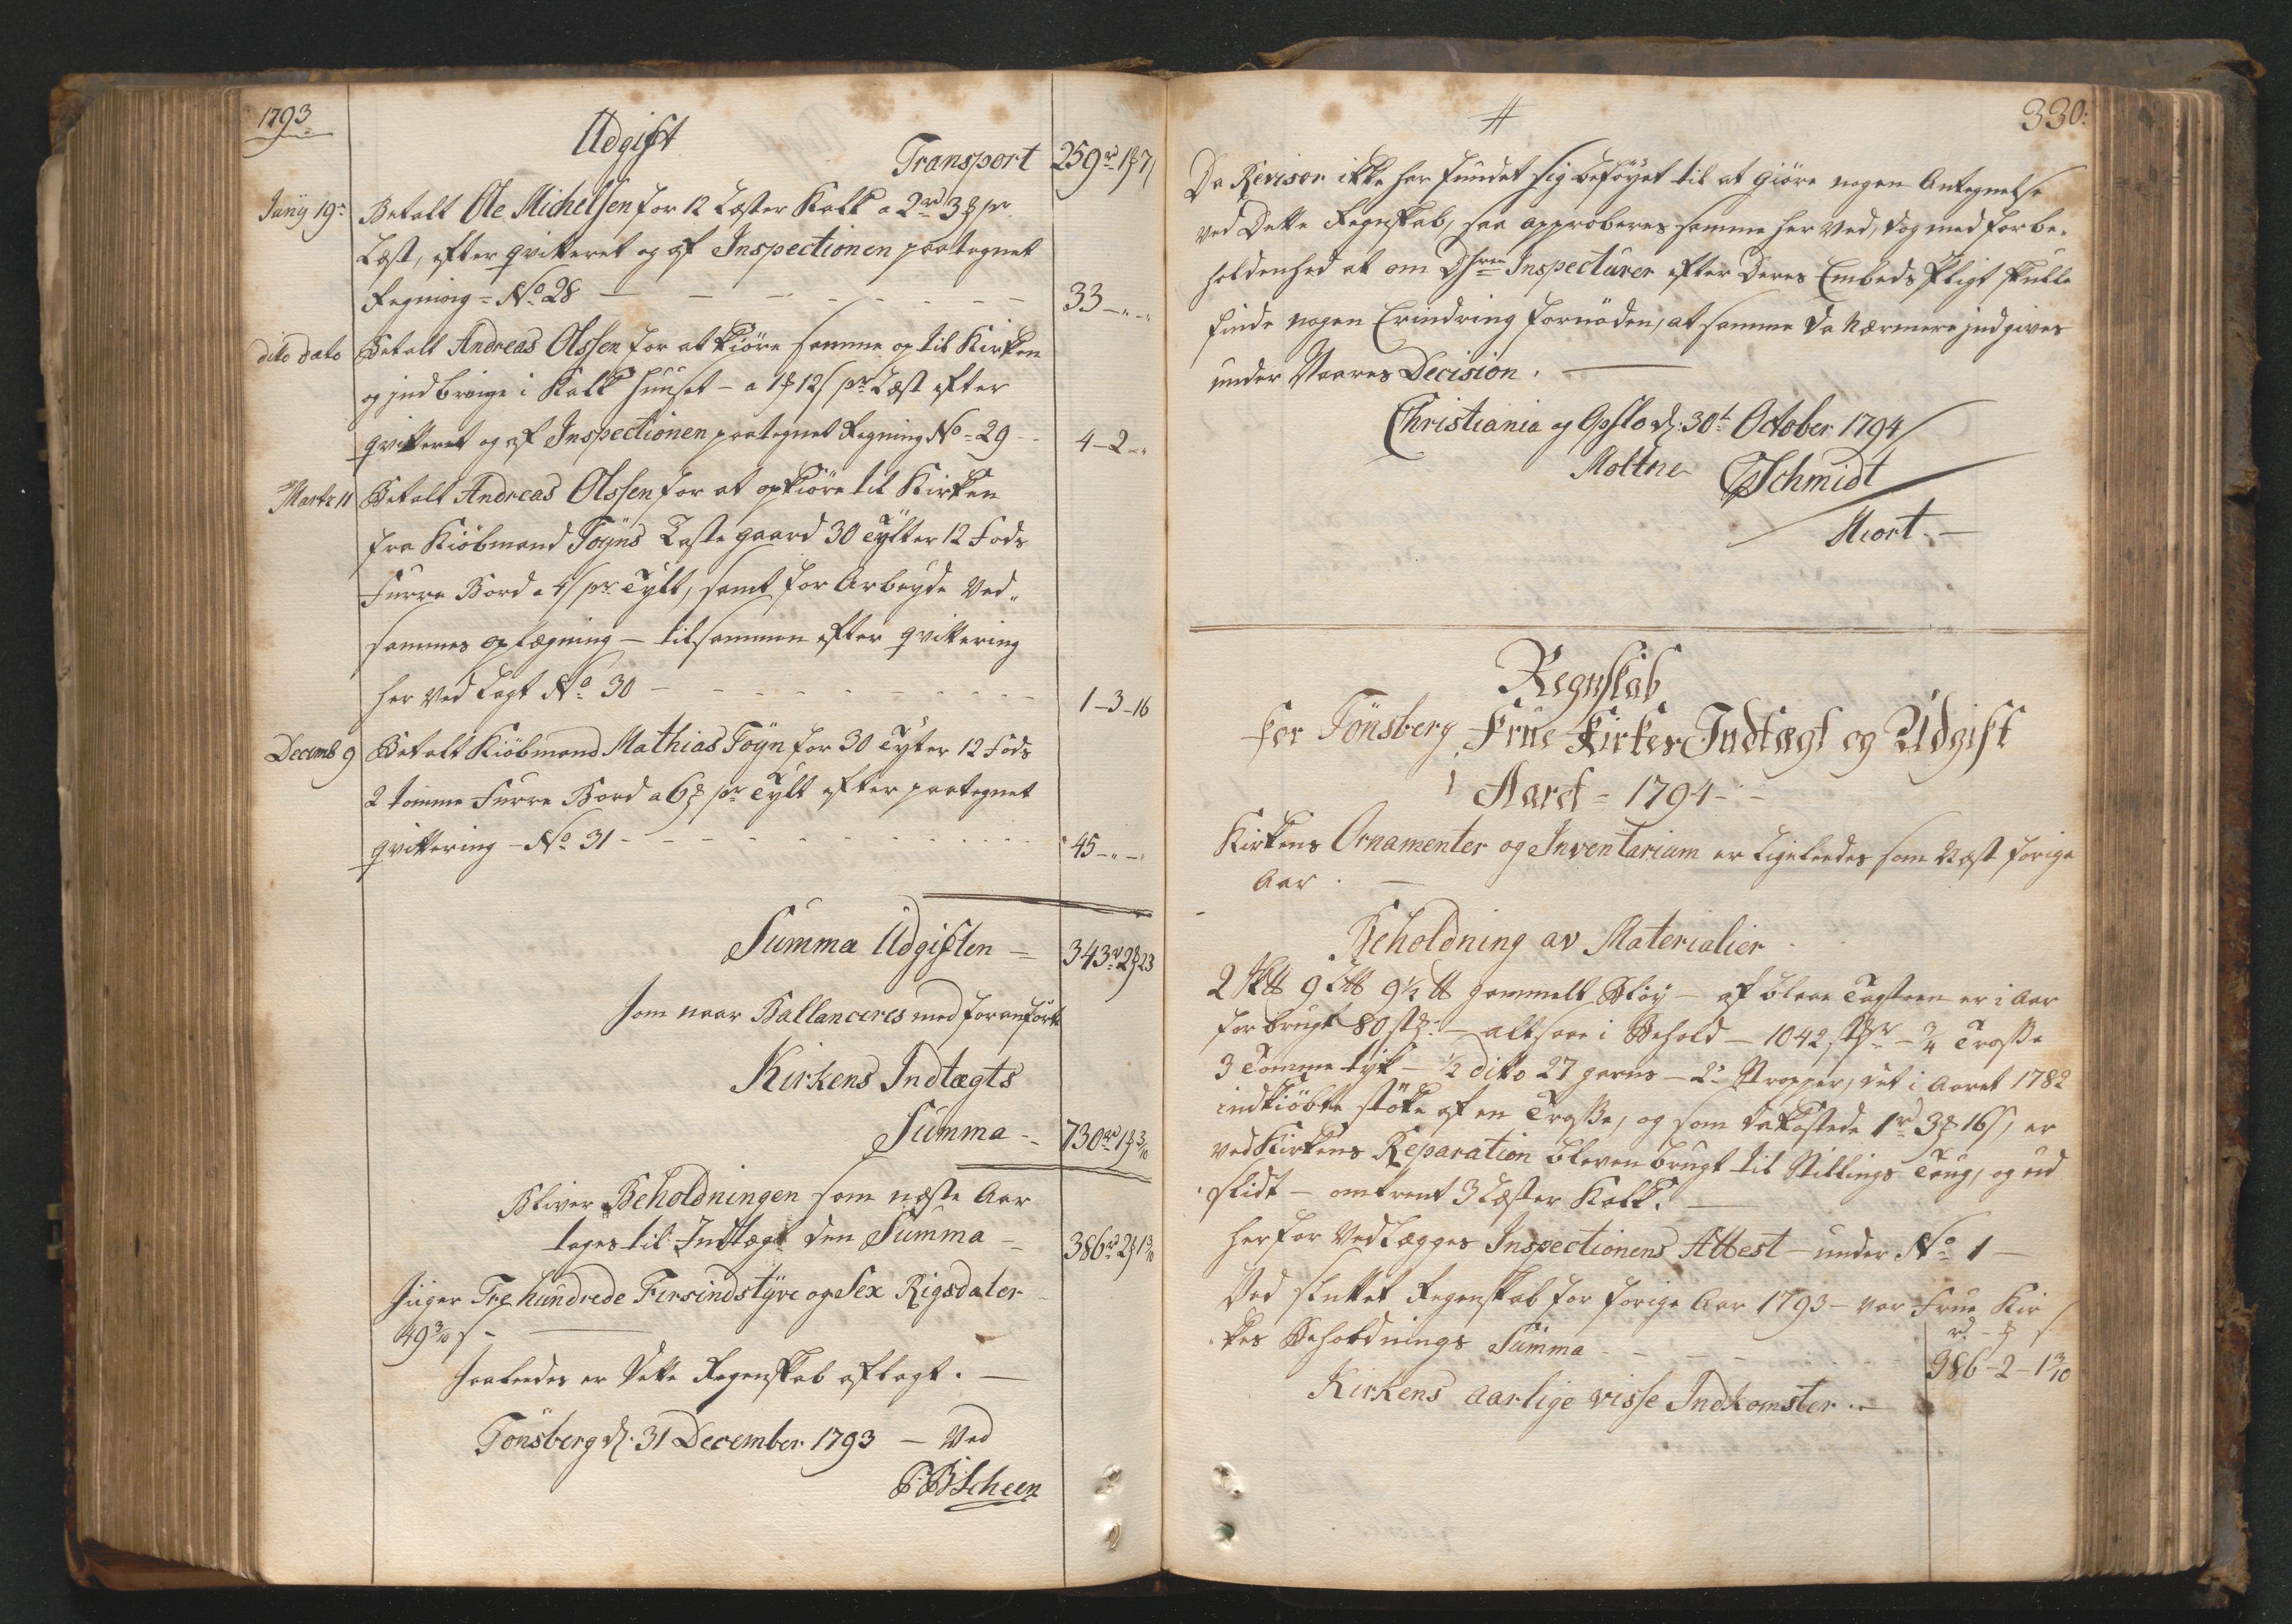 1793
Udgift
Transport 259 rd 1 ꝣ 7 s
Junÿ 19de Betalt Ole Michelsen for 12 Læster Kalk a 2 rd 3 ꝣ pr
Læst, efter qvitteret og af Inspectionen paategnet
Regning = No 28 — — — — 33 - „ - „
dito dato Betalt Andreas Olssen for at kiöre samme op til Kirken
og ind bringe i Kalk Huuset - a 1 ꝣ 12 s pr Læst efter
qvitteret og af Inspectionen paategnet Regning No = 29 - - 4 - 2 - „
Marti 11 Betalt Andreas Olssen for at opkiöre til Kirken
fra Kiöbmand Foÿns Laste gaard 30 Tÿlter 12 Fods
Furre Bord a 4 s pr Tÿlt, samt for Arbeyde Ved
sammes oplægning — tilsammen efter qvittering
her Ved Lagt No 30 - - - - 1 - 3 - 16
Decemb 9 Betalt Kiöbmand Mathias Foÿn for 30 Tÿter 12 Fods
2 tomme Furre Bord a 6 ꝣ pr Tÿlt efter paategnet
qvittering - No 31 - - - - 45 - „ - „
Summa Udgiften = 343 rd 2 ꝣ 23
som naar Ballanceres med foranförte
Kirkens Indtægts
Summa - - 730 rd 1 ꝣ 3/10
Bliver Beholdningen som næste Aar
tages til Indtægt den Summa - 386 rd 2 ꝣ 1 3/10
siiger Tre hundrede Firsindstÿve og Sex Rigsdaler
49 3/10 s -
saaledes er dette Regenskab aflagt. —
Tönsberg d. 31 December 1793 — Ved
Scheen
330:
Da Revisor ikke har fundet sig beföyet til at giöre nogen Antegnelse
ved dette Regnskab, saa approberes samme her ved, dog med forbe-
holdenhed at om Dhrr Inspecteurer efter deres Embeds Pligt skulle
finde nogen Erindring fornöden, at samme da nærmere indgives
under Vaares Decision. —
Christiania og Opslo d. 30t October 1794
Moltke Schmidt
Hiort. —
Regnskab
for Tönsberg Frue Kirkes Indtægt og Udgift
i Aaret = 1794 - -
Kirkens Ornamenter og Inventarium er Ligeledes som Næst forige
Aar. —
Beholdning av Materialier
2 S℔ 9 L℔ 9 ½ ℔ gammelt Blöy - af blaae Tagsteen er i Aar
forbrugt 80 st. — altsaa i Behold — 1042 st - 3/4 Trosse
3 Tomme tÿk - ½ dito 27 garns - 2de Stropper, det i Aaret 1782
indkiöbte stöke af en Trosse, og som da kostede 1 rd 3 ꝣ 16 s, er
ved Kirkens Reparation bleven brugt til Stillings Toug, og ud
slidt - omtrent 3 Læster Kalk. —
herfor Ved Lægges Inspectionens Attest — under No 1 —
Ved sluttet Regenskab for forige Aar 1793 - var Frue Kir
rd - ꝣ s
kes Beholdnings Summa - - - - 386 - 2 - 1 3/10
Kirkens aarlige visse Indkomster. —